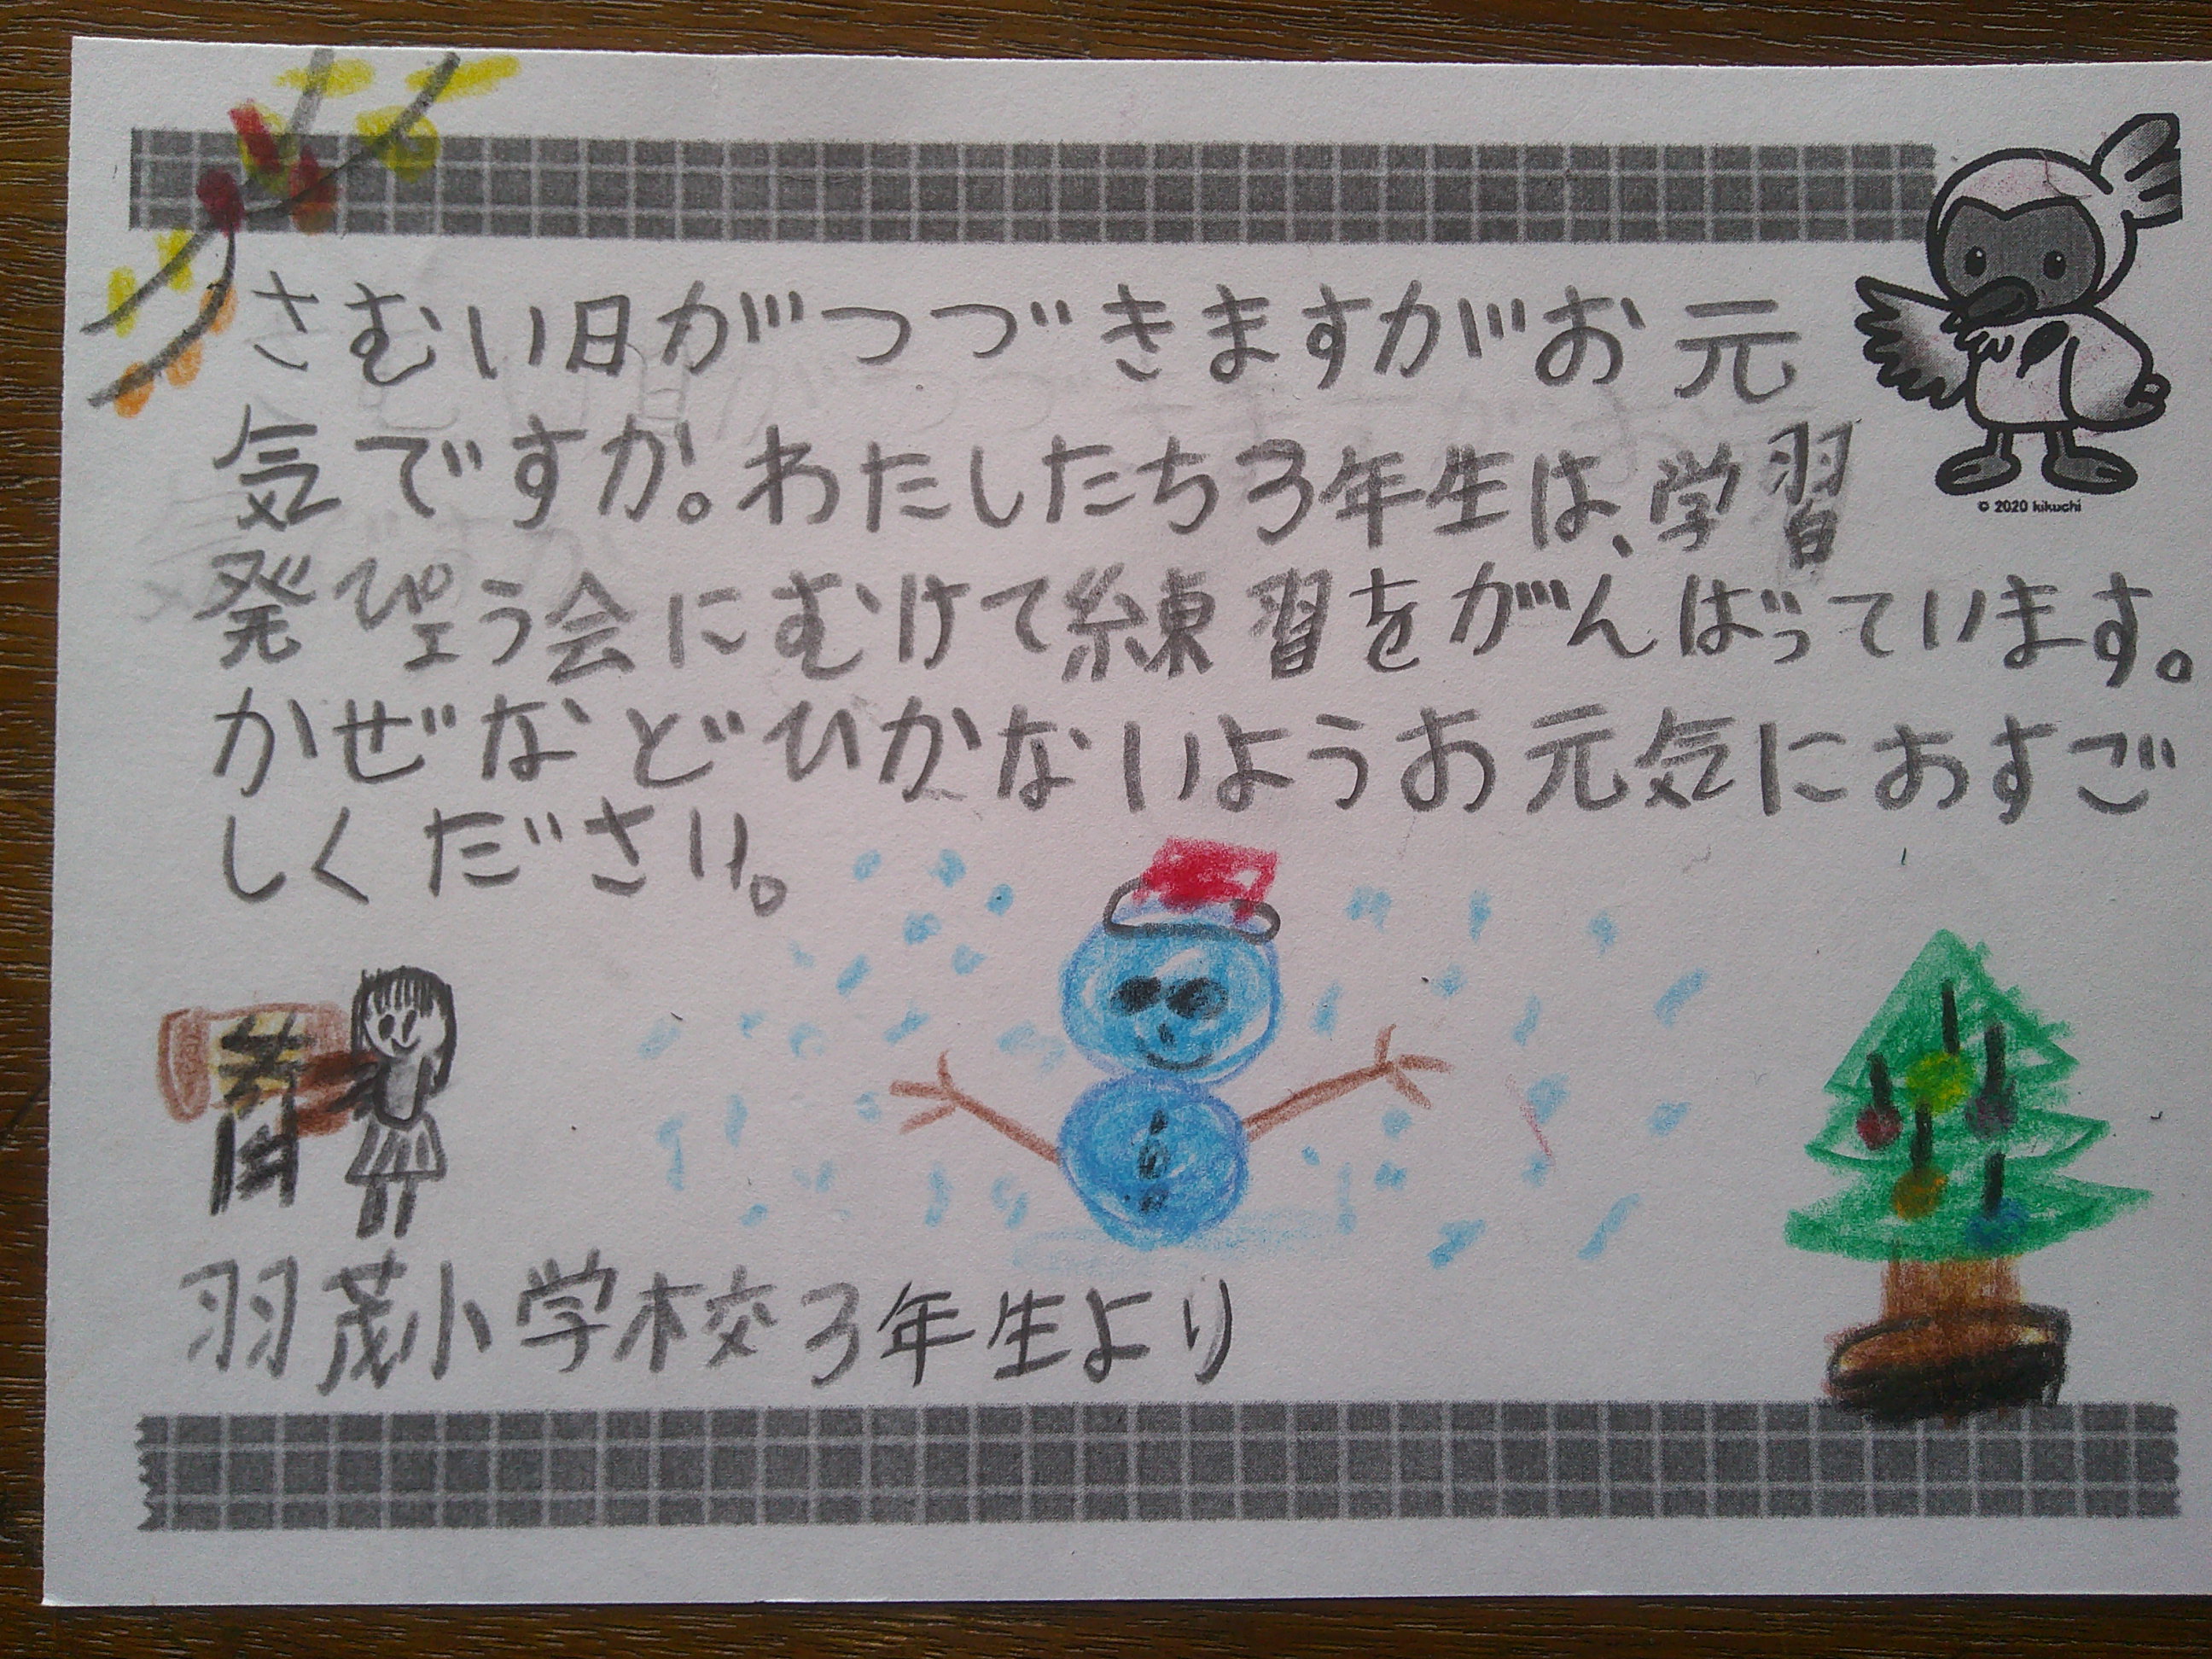 さむい日がつづきますがお元
気ですか。わたしたち3年生は、学習
発ぴょう会にむけて練習をがんばっています。
かぜなどひかないようお元気におすご
しください。
© 2020 kikuchi
羽茂小学校3年生より